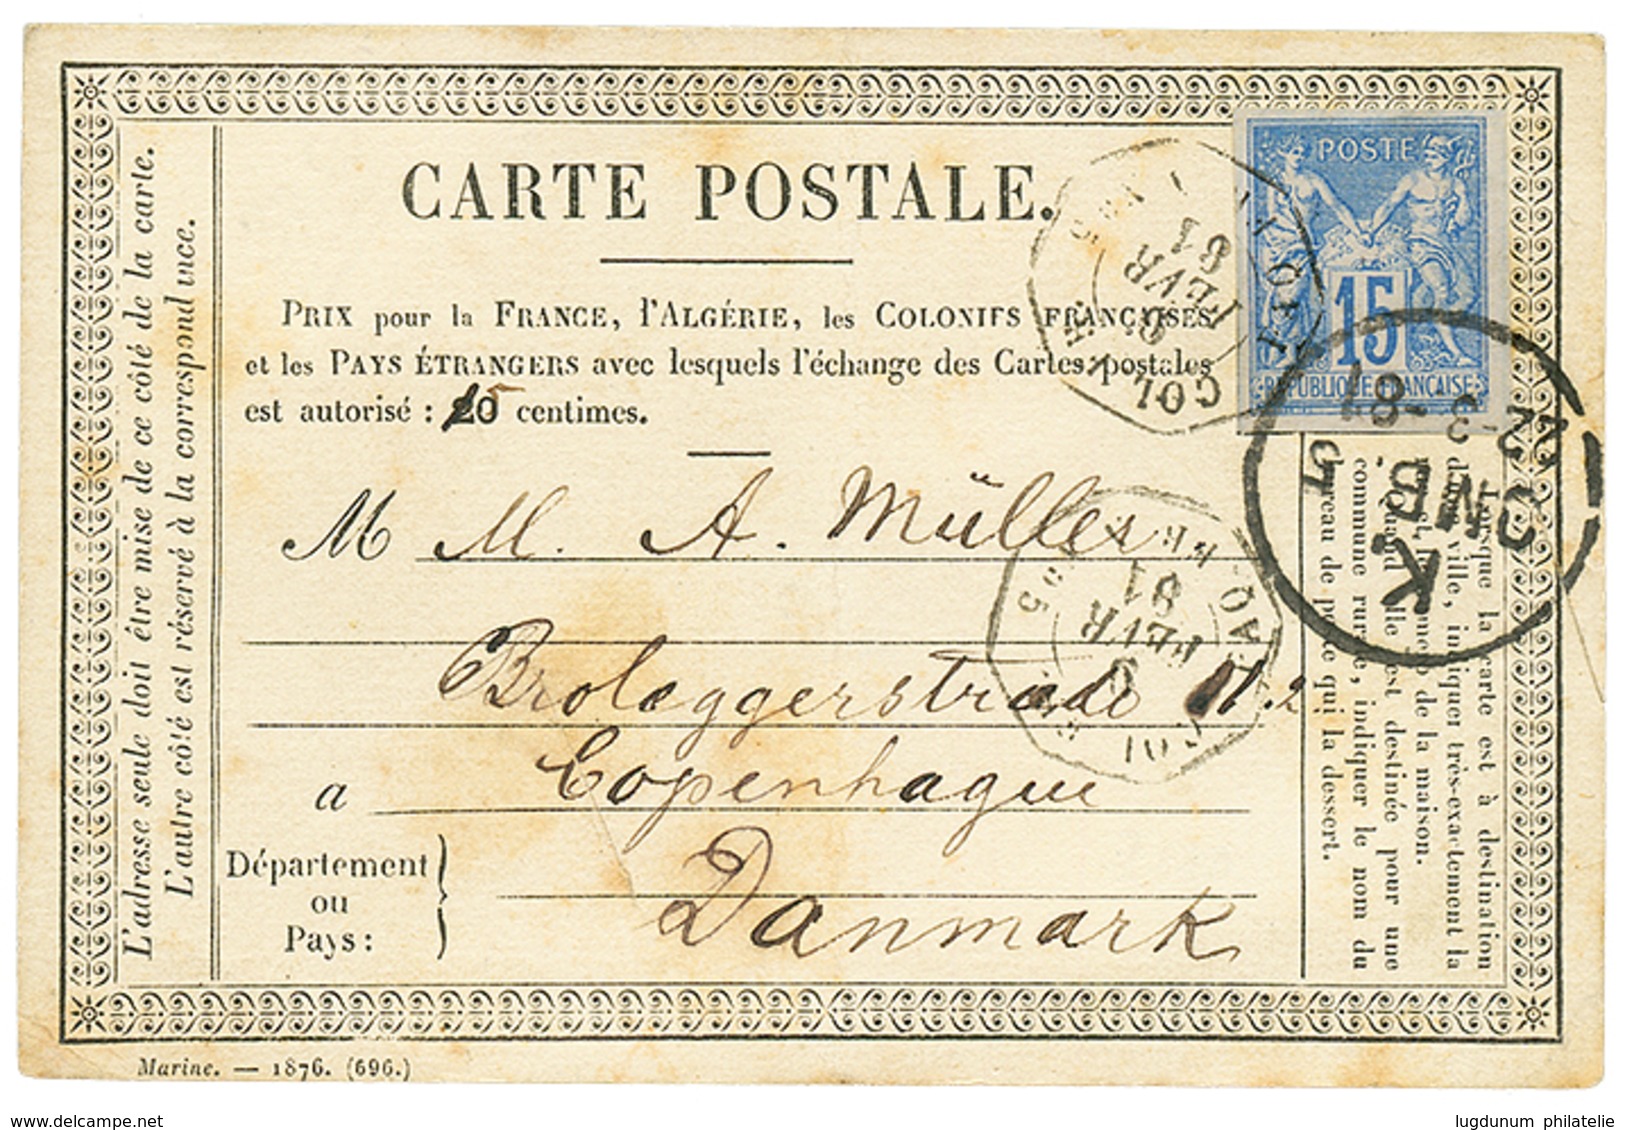 CARTE POSTALE.
PRIX pour la FRANCE, l'ALGÉRIE, les COLONIES FRANÇAISES
et les PAYS ÉTRANGERS avec lesquels l'échange des Cartes postales
est autorisé : 15 centimes.
M M. A. Müller
Brolæggerstræde N. 2
a Copenhague
Département
ou
Pays :
Danmark
L'adresse seule doit être mise de ce côté de la carte.
L'autre côté est réservé à la correspondance.
POSTE
15
REPUBLIQUE FRANCAISE
FEVR
81
FEVR
81
22 - 3 - 81
OMB.
K
5
Lorsque la carte est à destination
d'une ville, indiquer très-exactement la
rue et le numéro de la maison.
Quand elle est destinée pour une
commune rurale, indiquer le nom du
bureau de poste qui la dessert.
Marine. — 1876. (696.)
www.delcampe.net
lugdunum philatelie